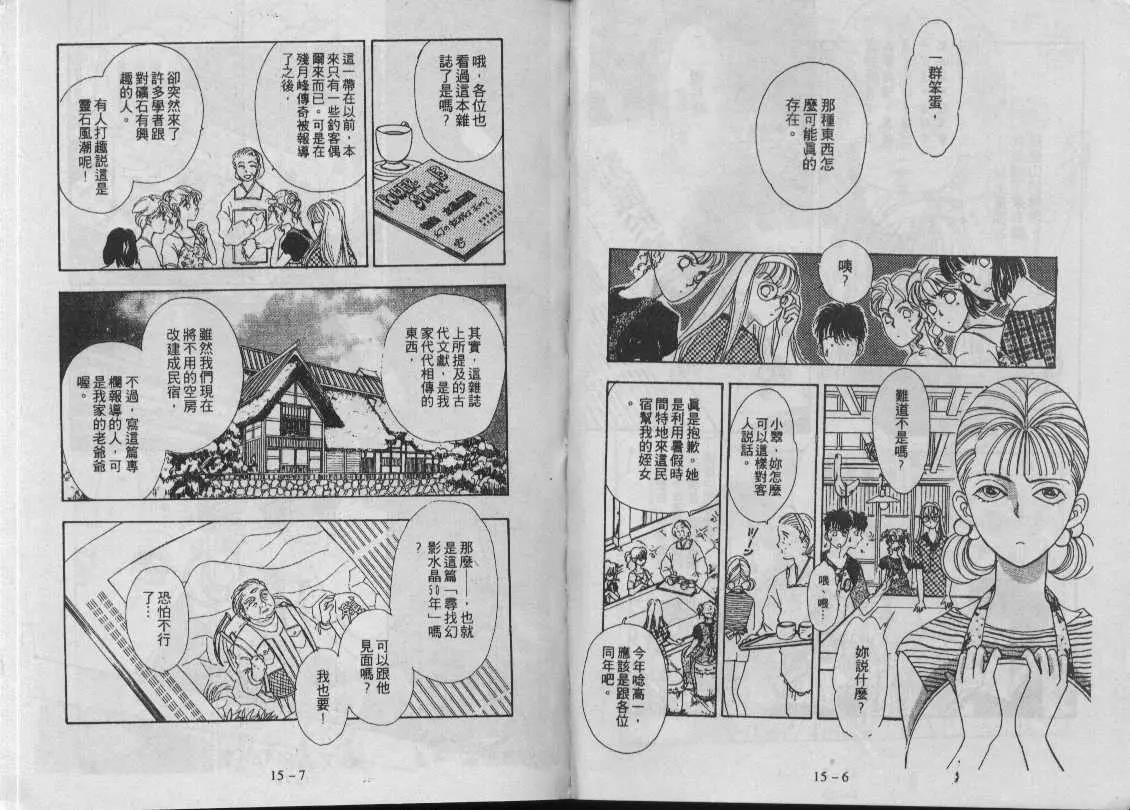 一群笨蛋，
那種東西怎
麼可能真的
存在。
咦？
難道不是嗎？
喂、
喂…
妳說什麼？
小翠，妳怎麼
可以這樣對客
人說話。
真是抱歉。她
是利用暑假時
間特地來這民
宿幫我的姪女
。
今年唸高一，
應該是跟各位
同年吧。
15-6
哦，各位也
看過這本雜
誌了是嗎？
這一帶在以前，本
來只有一些釣客偶
爾來而已。可是在
殘月峰傳奇被報導
了之後，
卻突然來了
許多學者跟
對礦石有興
趣的人。
有人打趣說這是
靈石風潮呢！
其實，這雜誌
上所提及的古
代文獻，是我
家代代相傳的
東西，
雖然我們現在
將不用的空房
改建成民宿，
不過，寫這篇專
欄報導的人，可
是我家的老爺爺
喔。
那麼——，也就
是這篇「尋找幻
影水晶50年」嗎
？
可以跟他
見面嗎？
我也要！
恐怕不行
了…
15-7